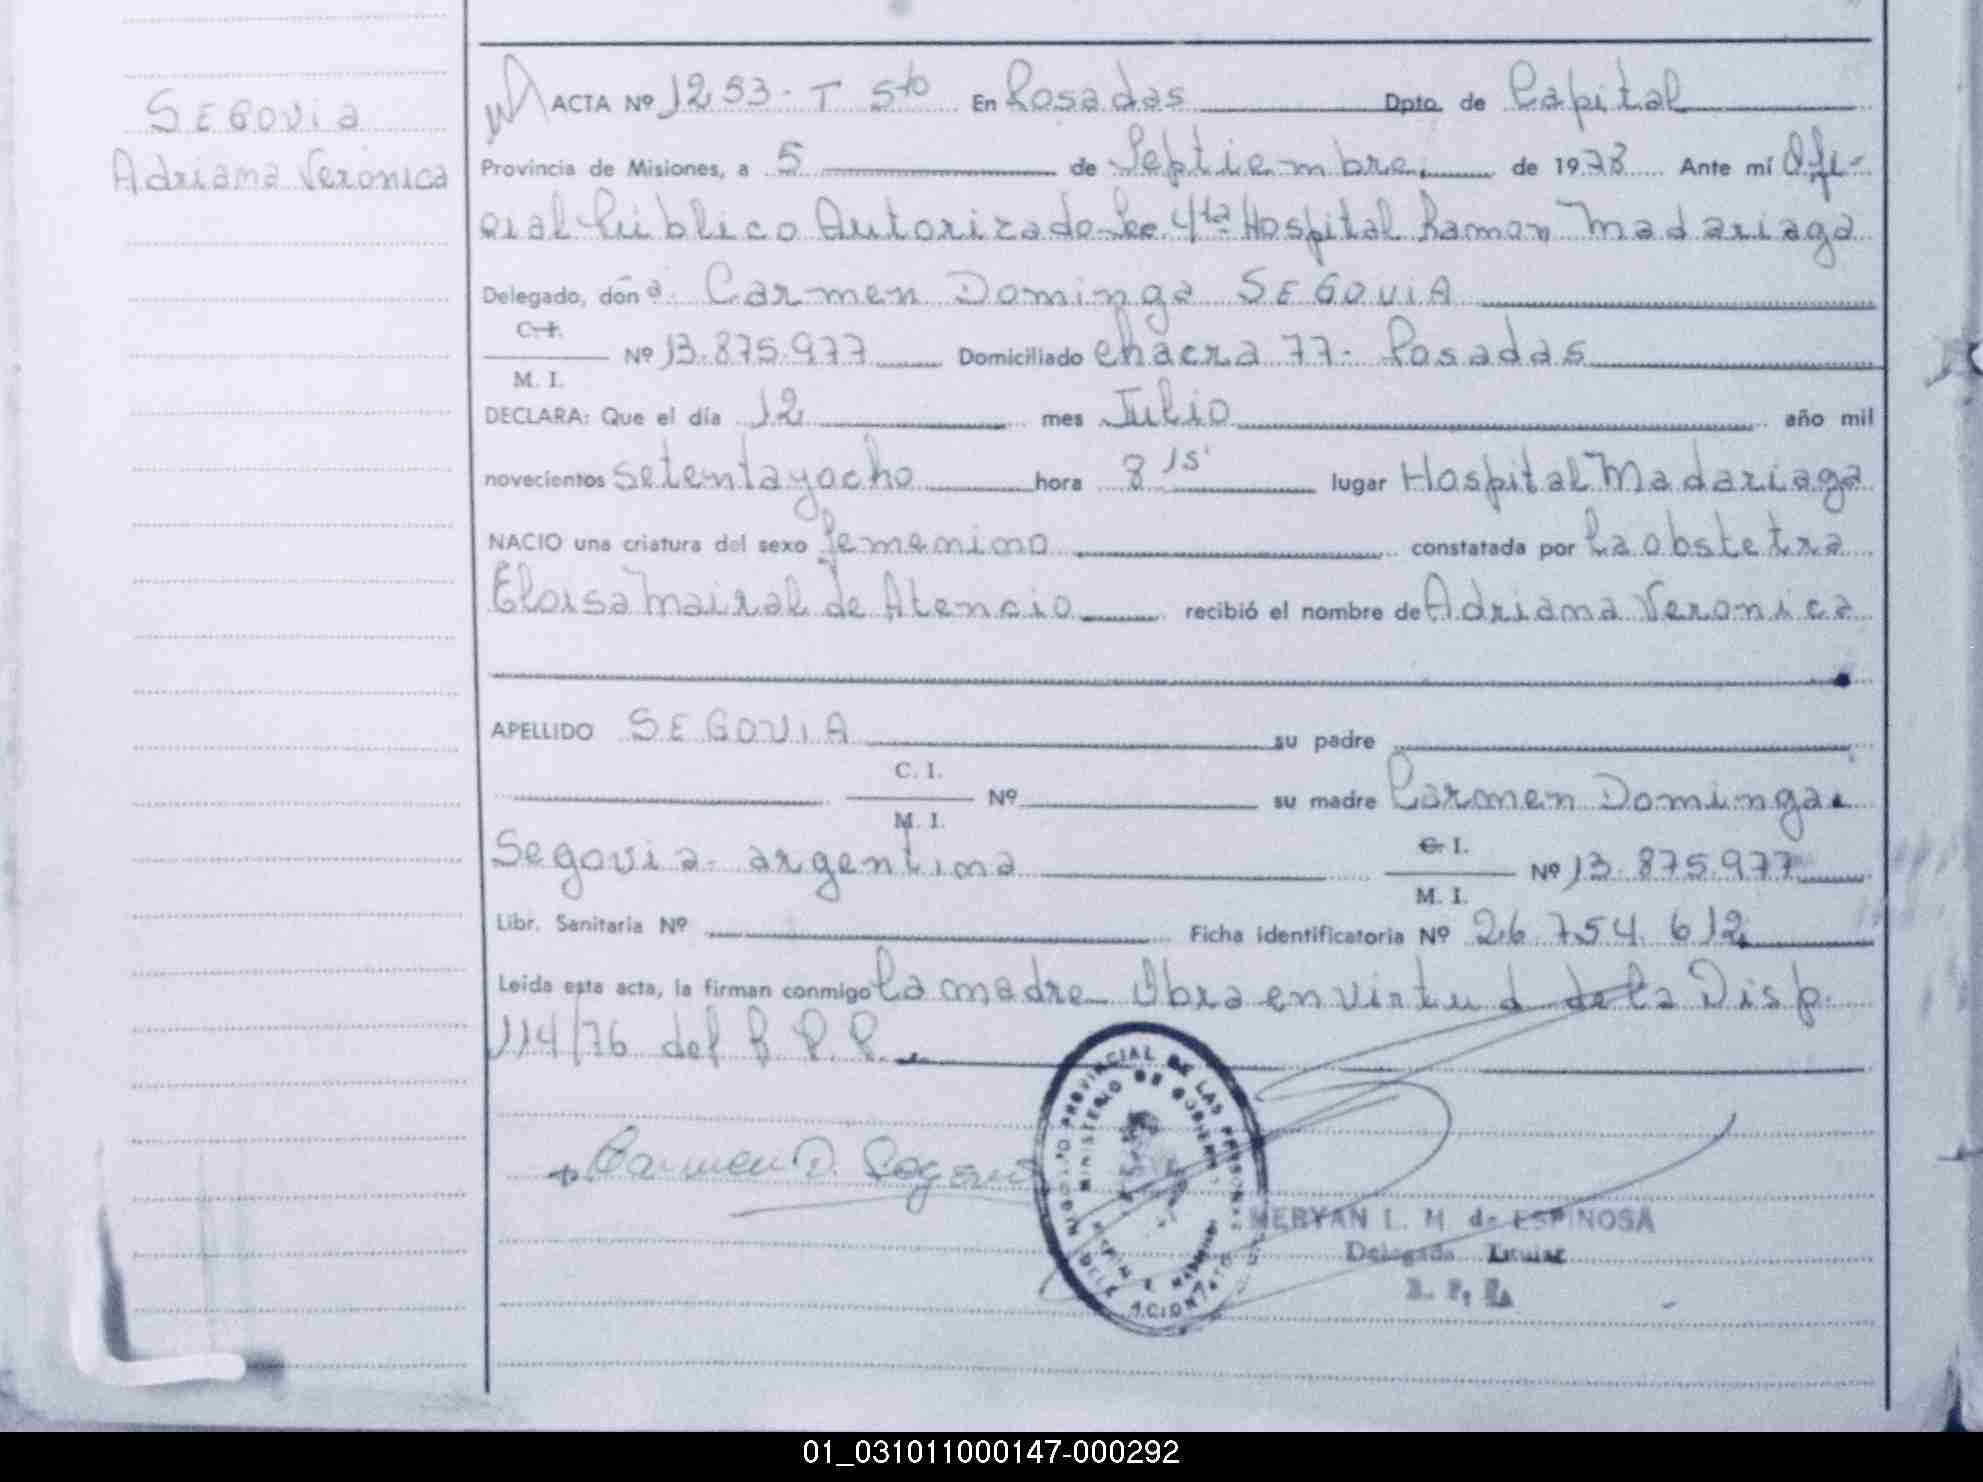 SEGOVIA
Adriana Verónica
ACTA Nº 1253 - T 5to En Posadas Dpto. de Capital
Provincia de Misiones, a 5 de Septiembre de 1978 Ante mí Ofi-
cial Público Autorizado Sec 4ta Hospital Ramon Madariaga
Delegado, don a Carmen Dominga SEGOVIA
C. I.
Nº 13.875.977 Domiciliado chacra 77 - Posadas
M. I.
DECLARA: Que el día 12 mes Julio año mil
novecientos setentayocho hora 8 15' lugar Hospital Madariaga
NACIO una criatura del sexo femenino constatada por la obstetra
Eloisa Mairal de Atencio recibió el nombre de Adriana Veronica
APELLIDO SEGOVIA su padre
C. I.
Nº su madre Carmen Dominga
M. I.
Segovia - argentina C. I. Nº 13.875.977
M. I.
Libr. Sanitaria Nº Ficha identificatoria Nº 26.754.612
Leida esta acta, la firman conmigo la madre Obra en virtud de la Disp.
114/76 del R.P.P.
Carmen D. Segovia
PROVINCIAL DE LAS PERSONAS
MINISTERIO DE GOBIERNO
MERYAN L. M. de ESPINOSA
Delegada Titular
R. P. P.
01_031011000147-000292